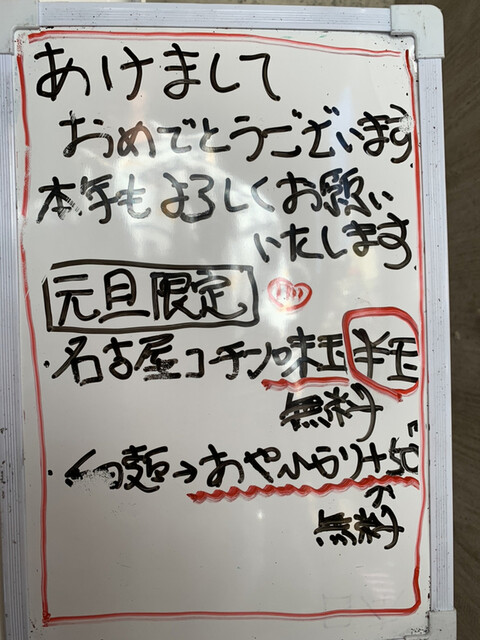 あけまして
おめでとうございます
本年もよろしくお願い
いたします
元旦限定
・名古屋コーチン味玉半玉
無料
・細麺→あやひかり+50
無料